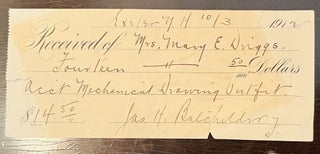 Exeter N H 10/3 1912
Received of Mrs. Mary E. Driggs.
Fourteen — " — 50/100 Dollars
Acct Mechanical Drawing Outfit.
$14 50/" Jas H. Batchelder